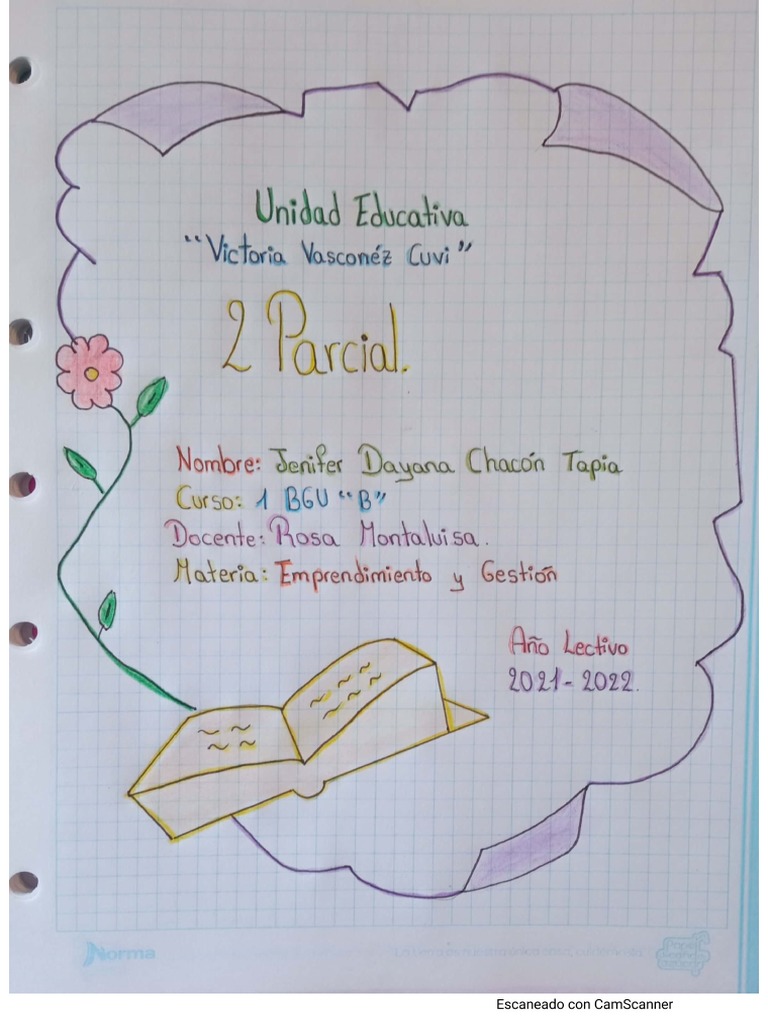 Unidad Educativa
"Victoria Vasconéz Cuvi"
2 Parcial.
Nombre: Jenifer Dayana Chacón Tapia
Curso: 1 BGU "B"
Docente: Rosa Montaluisa.
Materia: Emprendimiento y Gestión
Año Lectivo
2021-2022.
Norma
Escaneado con CamScanner